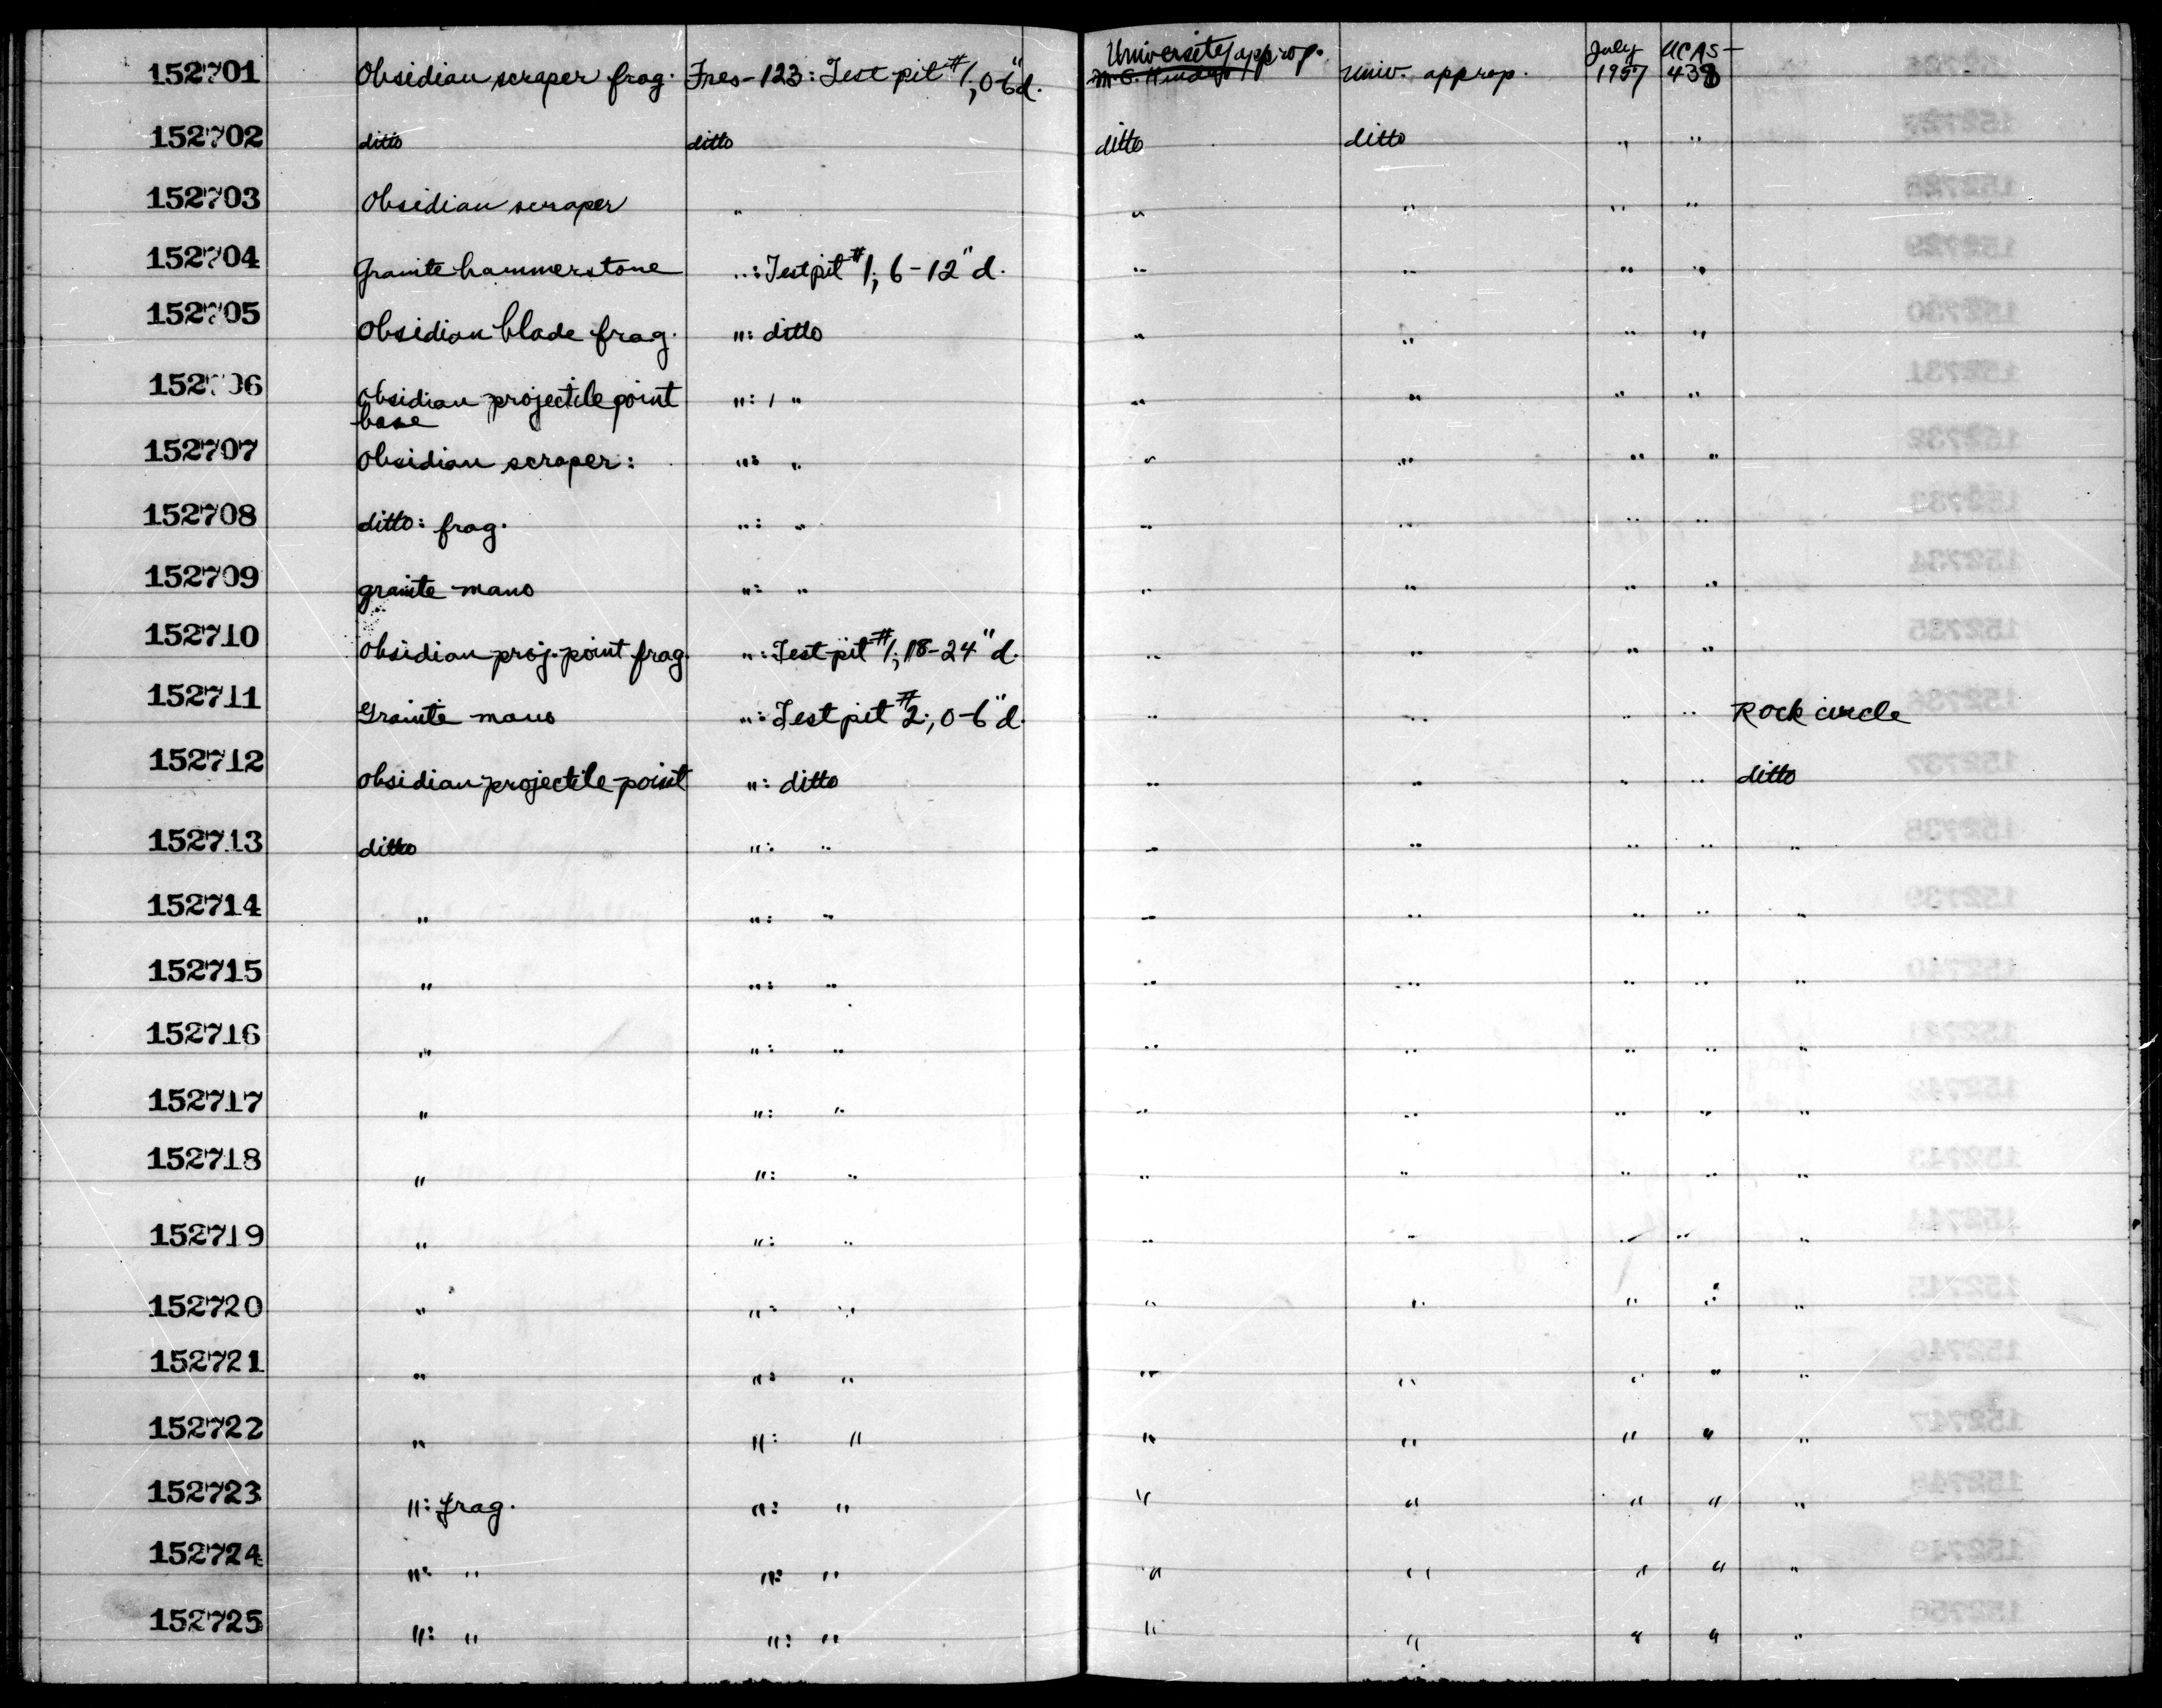 University approp.
152701 Obsidian scraper frag. Fres-123: Test pit #1, 0-6"d. Univ. approp. July 1957 UCAS-438
152702 ditto ditto ditto ditto " "
152703 Obsidian scraper " " " " "
152704 Granite hammerstone ": Test pit #1; 6-12"d. " " " "
152705 Obsidian blade frag. ": ditto " " " "
152706 Obsidian projectile point ": " " " " "
base
152707 Obsidian scraper: ": " " " " "
152708 ditto: frag. ": " " " " "
152709 granite mano ": " " " " "
152710 Obsidian proj. point frag. ": Test pit #1; 18-24"d. " " " "
152711 Granite mano ": Test pit #2; 0-6"d. " " " " Rock circle
152712 Obsidian projectile point ": ditto " " " " ditto
152713 ditto ": " " " " " "
152714 " ": " " " " " "
152715 " ": " " " " " "
152716 " ": " " " " " "
152717 " ": " " " " " "
152718 " ": " " " " " "
152719 " ": " " " " " "
152720 " ": " " " " " "
152721 " ": " " " " " "
152722 " ": " " " " " "
152723 ": frag. ": " " " " " "
152724 ": " ": " " " " " "
152725 ": " ": " " " " " "